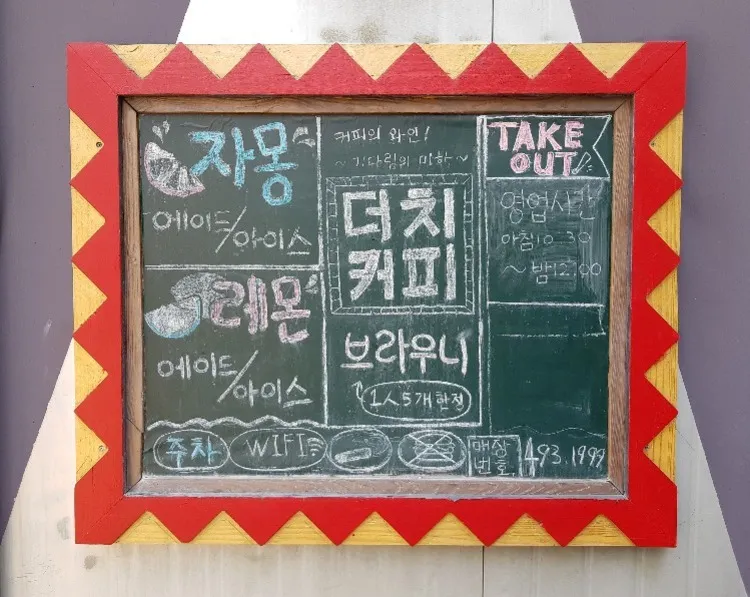 자몽
에이드/아이스
레몬
에이드/아이스
커피의 와인!
~기다림의 미학~
더치
커피
브라우니
1人5개한정
TAKE
OUT
영업시간
아침10:30
~밤12:00
주차
WIFI
매장
번호
493.1999